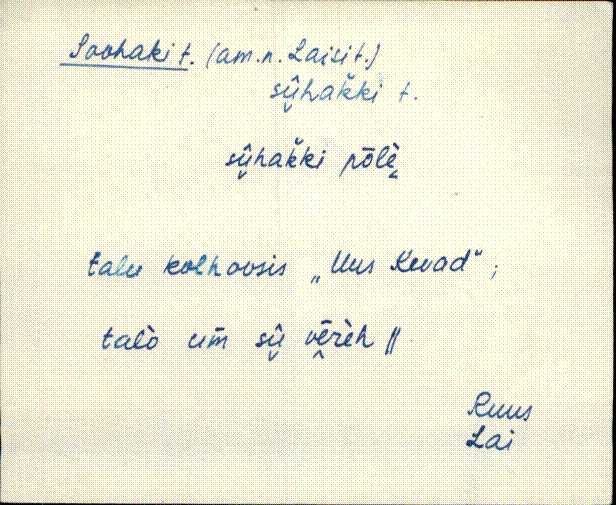 Soohaki t. (am.n. Laisi t.)
sū̬̂hak̆ki t.
sū̬̂hak̆ki pōlè̬
talu kolhoosis „Uus Kevad";
talò um̄ sū̬̂ vē̬rèh ||
Ruus
Lai